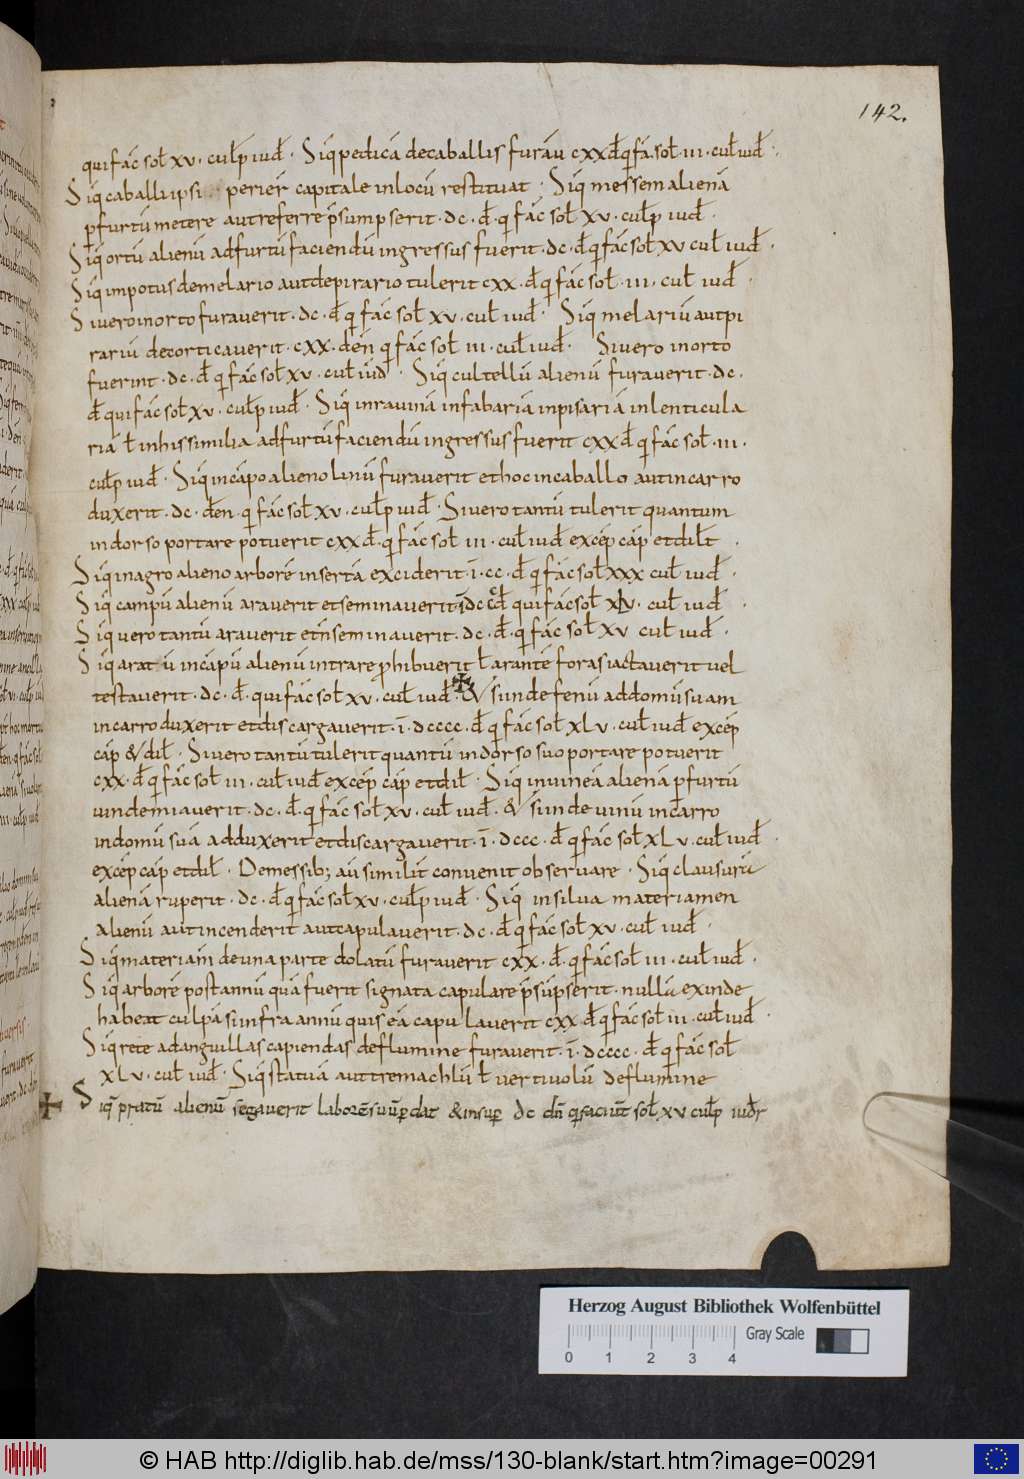 142.
qui fac̄ sol̄ xv · cul̄p iud̄ · Siq̄ pedicā de caballis furāu cxx d̄ q̄ fā sol̄ · iii · cul̄ iud̄ ·
Siq̄ caballi ipsi perier̄ capitale in locū restituat · Siq̄ messem alienā
p̱ furtū metere aut referre p̄sumpserit · dc · d̄ · q̄ fac̄ sol̄ xv · cul̄p iud̄ ·
Siq̄ ortū alienū ad furtū faciendū ingressus fuerit · dc · d̄ q̄ fac̄ sol̄ xv cul̄ iud̄ ·
Siq̄ impotus de melario aut de pirario tulerit cxx · d̄ q̄ fac̄ sol̄ · iii · cul̄ iud̄ ·
Si vero in orto furaverit · dc · d̄ q̄ fac̄ sol̄ xv · cul̄ iud̄ · Siq̄ melariū aut pi
rariū decorticaverit · cxx · den̄ q̄ fac̄ sol̄ iii · cul̄ iud̄ · Si vero in orto
fuerint · dc · d̄ q̄ fac̄ sol̄ xv · cul̄ iud̄ · Siq̄ cultellū alienū furaverit · dc ·
d̄ qui fac̄ sol̄ xv · cul̄p iud̄ · Siq̄ in ravinā in fabariā in pisariā in lenticula
riā l̄ in his similia ad furtū faciendū ingressus fuerit cxx d̄ q̄ fac̄ sol̄ · iii ·
cul̄p iud̄ · Siq̄ in cāpo alieno linū furaverit et hoc in caballo aut in carro
duxerit · dc · den̄ · q̄ fac̄ sol̄ xv · cul̄p iud̄ · Si vero tantū tulerit quantum
in dorso portare potuerit cxx d̄ · q̄ fac̄ sol̄ iii · cul̄ iud̄ excep̄ cap̄ et dil̄t ·
Siq̄ in agro alieno arborē insertā exciderit · ī · cc · d̄ q̄ fac̄ sol̄ xxx cul̄ iud̄ ·
Siq̄ campū alienū araverit et seminaverit ī dccc d̄ qui fac̄ sol̄ xlv · cul̄ iud̄ ·
Siq̄ vero tantū araverit et n̄ seminaverit · dc · d̄ · q̄ fac̄ sol̄ xv cul̄ iud̄ ·
Siq̄ aratū in cāpū alienū intrare p̱hibuerit l̄ arantē foras iactaverit vel
testaverit · dc · d̄ · qui fac̄ sol̄ xv · cul̄ iud̄ · & si inde fenū ad domū suam
in carro duxerit et discargaverit · ī · dcccc · d̄ q̄ fac̄ sol̄ xlv · cul̄ iud̄ excep̄
cap̄ & dil̄ · Si vero tantū tulerit quantū in dorso suo portare potuerit
cxx · d̄ q̄ fac̄ sol̄ iii · cul̄ iud̄ excep̄ cap̄ et dil̄ · Siq̄ in vineā alienā p̱ furtū
vindemiaverit · dc · d̄ · q̄ fac̄ sol̄ xv · cul̄ iud̄ · & si inde vinū in carro
in domū suā adduxerit et discargaverit · ī · dccc · d̄ q̄ fac̄ sol̄ xlv · cul̄ iud̄ ·
excep̄ cap̄ et dil̄ · De messib; aū similit̄ convenit observare · Siq̄ clausurā
alienā ruperit · dc · d̄ q̄ fac̄ sol̄ xv · cul̄p iud̄ · Siq̄ in silva materiamen
alienū aut incenderit aut capulaverit · dc · d̄ q̄ fac̄ sol̄ xv · cul̄ iud̄ ·
Siq̄ materiam de una parte dolatū furaverit cxx · d̄ · q̄ fac̄ sol̄ iii · cul̄ iud̄ ·
Siq̄ arborē post annū quā fuerit signata capulare p̄sūpserit · nullā exinde
habeat culpā si infra annū quis eā capulaverit cxx d̄ q̄ fac̄ sol̄ iii · cul̄ iud̄ ·
Siq̄ rete ad anguillas capiendas de flumine furaverit · ī · dcccc · d̄ q̄ fac̄ sol̄
xlv · cul̄ iud̄ · Siq̄ statuā aut tremachlū l̄ vertivolū de flumine
Siq̄ pratū alienū segaverit laborē suū p̱dat & insup̱ dc dn̄ q̄ faciūt sol̄ xv cul̄p iud̄r
Herzog August Bibliothek Wolfenbüttel
Gray Scale
0 1 2 3 4
© HAB http://diglib.hab.de/mss/130-blank/start.htm?image=00291